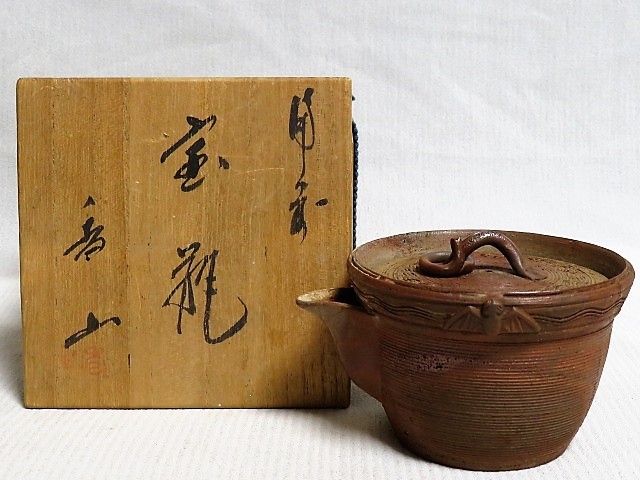 備前
宝瓶
香山